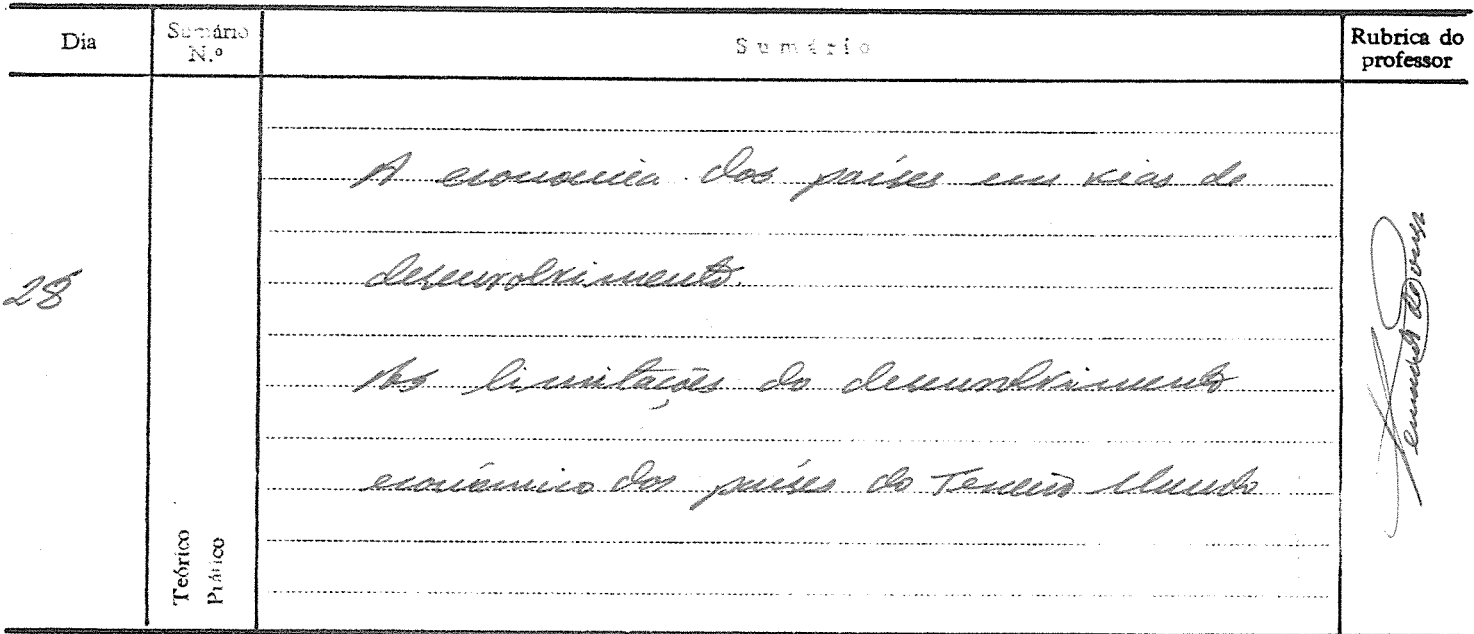 Dia
Sumário
N.º
Sumário
Rubrica do
professor
28
A economia dos países em vias de
desenvolvimento.
As limitações do desenvolvimento
económico dos países do Terceiro Mundo
Teórico
Prático